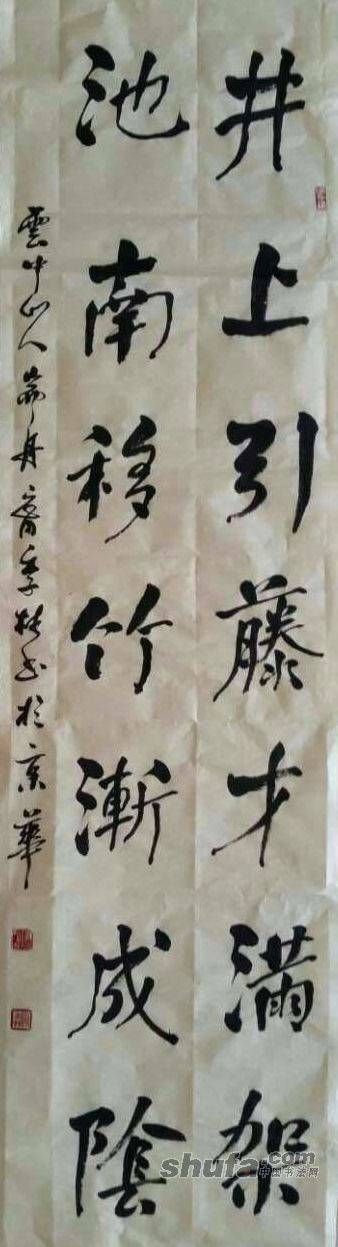 井上引藤才滿架
池南移竹漸成陰
雲中山人 舟 書於京華
shufa.com
中国书法网